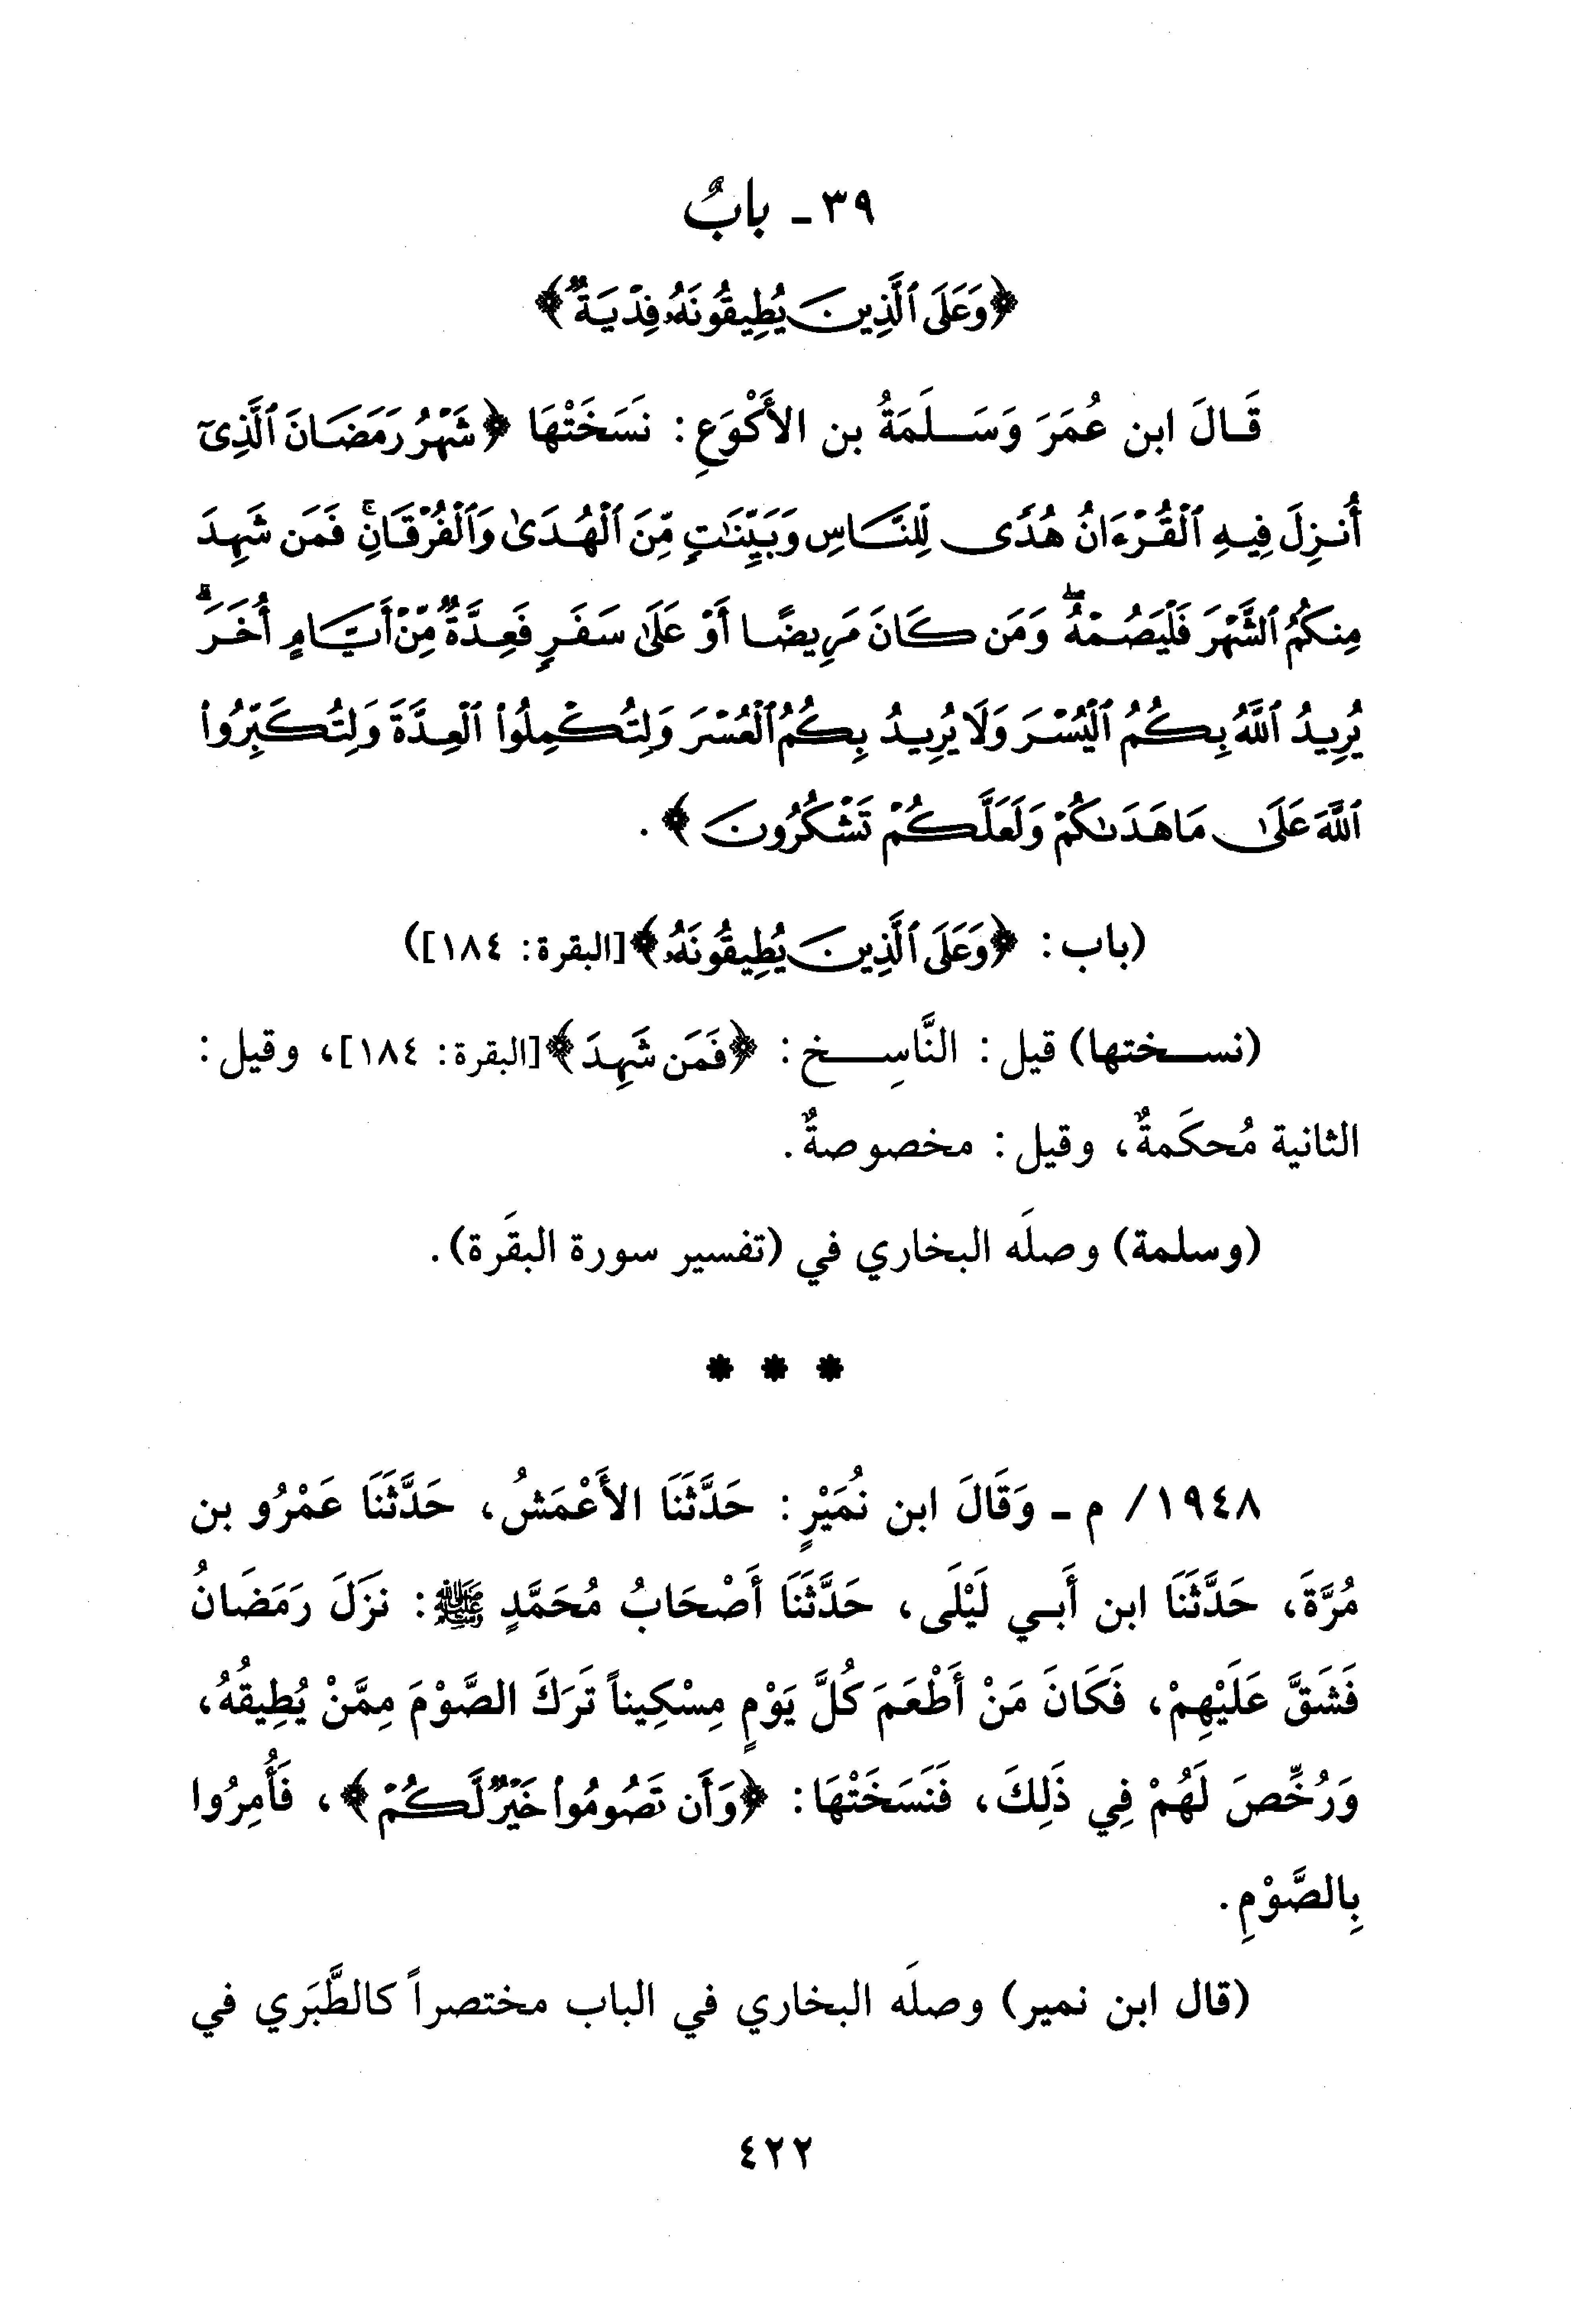 ٣٩ - بابٌ
﴿وَعَلَى ٱلَّذِينَ يُطِيقُونَهُۥ فِدْيَةٌ﴾
قَالَ ابن عُمَرَ وَسَلَمَةُ بن الأَكْوَعِ: نَسَخَتْهَا ﴿شَهْرُ رَمَضَانَ ٱلَّذِىٓ
أُنزِلَ فِيهِ ٱلْقُرْءَانُ هُدًى لِّلنَّاسِ وَبَيِّنَٰتٍ مِّنَ ٱلْهُدَىٰ وَٱلْفُرْقَانِ ۚ فَمَن شَهِدَ
مِنكُمُ ٱلشَّهْرَ فَلْيَصُمْهُ ۖ وَمَن كَانَ مَرِيضًا أَوْ عَلَىٰ سَفَرٍ فَعِدَّةٌ مِّنْ أَيَّامٍ أُخَرَ ۗ
يُرِيدُ ٱللَّهُ بِكُمُ ٱلْيُسْرَ وَلَا يُرِيدُ بِكُمُ ٱلْعُسْرَ وَلِتُكْمِلُوا۟ ٱلْعِدَّةَ وَلِتُكَبِّرُوا۟
ٱللَّهَ عَلَىٰ مَا هَدَىٰكُمْ وَلَعَلَّكُمْ تَشْكُرُونَ﴾.
(باب: ﴿وَعَلَى ٱلَّذِينَ يُطِيقُونَهُۥ﴾[البقرة: ١٨٤])
(نسختها) قيل: النَّاسِخ: ﴿فَمَن شَهِدَ﴾[البقرة: ١٨٤]، وقيل:
الثانية مُحكَمةٌ، وقيل: مخصوصةٌ.
(وسلمة) وصلَه البخاري في (تفسير سورة البقَرة).
* * *
١٩٤٨/ م - وَقَالَ ابن نُمَيْرٍ: حَدَّثَنَا الأَعْمَشُ، حَدَّثَنَا عَمْرُو بن
مُرَّةَ، حَدَّثَنَا ابن أَبي لَيْلَى، حَدَّثَنَا أَصْحَابُ مُحَمَّدٍ ﷺ: نزَلَ رَمَضَانُ
فَشَقَّ عَلَيْهِمْ، فَكَانَ مَنْ أَطْعَمَ كُلَّ يَوْمٍ مِسْكِيناً تَرَكَ الصَّوْمَ مِمَّنْ يُطِيقُهُ،
وَرُخِّصَ لَهُمْ فِي ذَلِكَ، فَنَسَخَتْهَا: ﴿وَأَن تَصُومُوا۟ خَيْرٌ لَّكُمْ﴾، فَأُمِرُوا
بِالصَّوْمِ.
(قال ابن نمير) وصلَه البخاري في الباب مختصراً كالطَّبَري في
٤٢٢